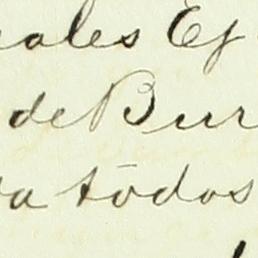 eales Ej
de Bur
ra todos